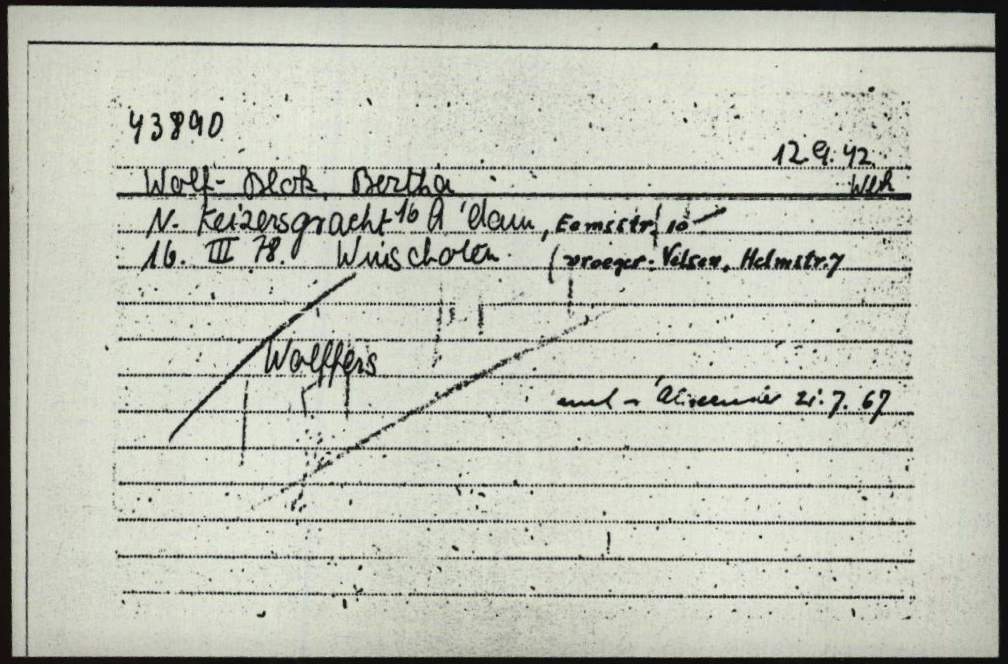 43890
12.9.42
Wolf- Blok Bertha
N. Keizersgracht 16 A'dam, Eemsstr. 10
16. III 78. Winschoten. (vroeger: Velsen, Helmstr. 7
Wolffers
21.7.67